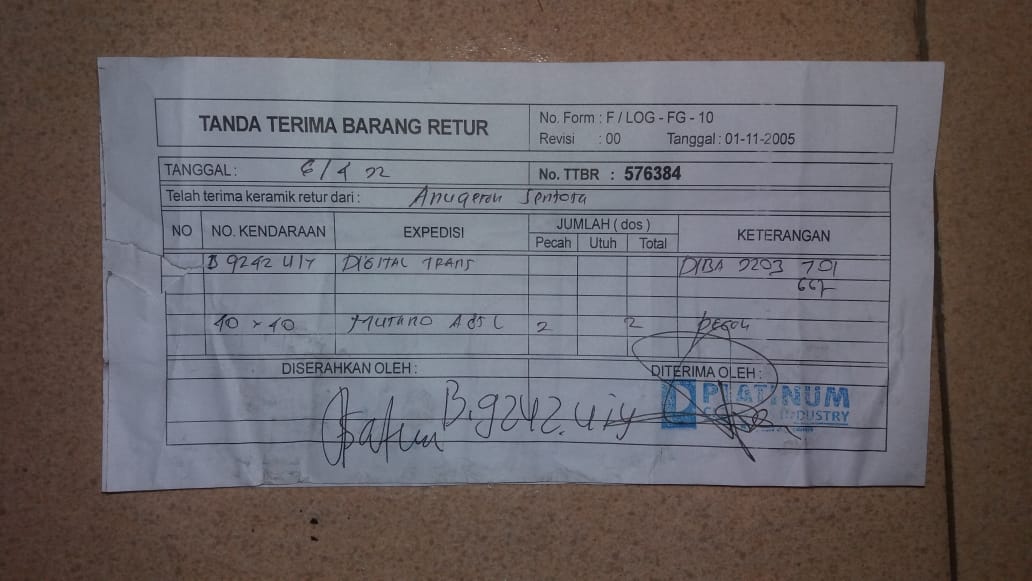 TANDA TERIMA BARANG RETUR
No. Form : F / LOG - FG - 10
Revisi : 00 Tanggal : 01-11-2005
TANGGAL : 6/4 22
No. TTBR : 576384
Telah terima keramik retur dari : Anugerah Sentosa
NO NO. KENDARAAN EXPEDISI JUMLAH ( dos ) KETERANGAN
Pecah Utuh Total
B 9242 UIY DIGITAL TRANS DIBA 2203 701
667
40 x 40 2 2 pecah
DISERAHKAN OLEH : DITERIMA OLEH :
PLATINUM
INDUSTRY
B.9242.uiy